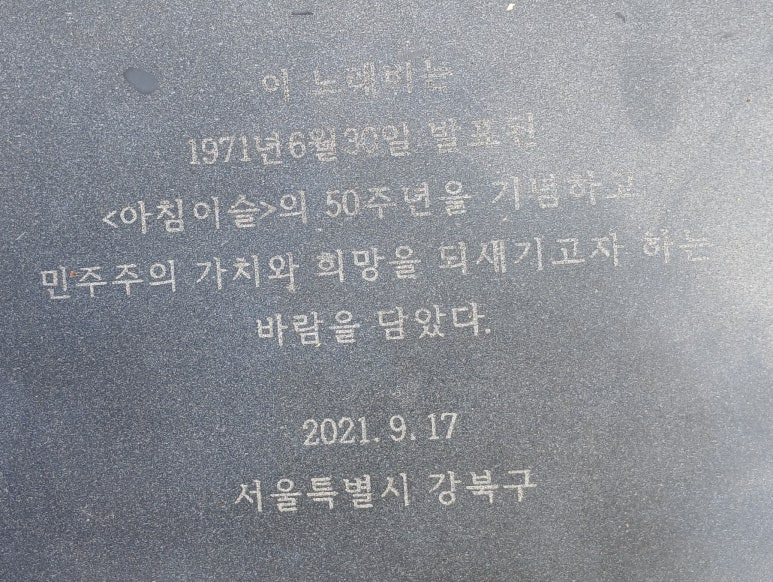 이 노래비는
1971년6월30일 발표된
<아침이슬>의 50주년을 기념하고
민주주의 가치와 희망을 되새기고자 하는
바람을 담았다.
2021. 9. 17
서울특별시 강북구